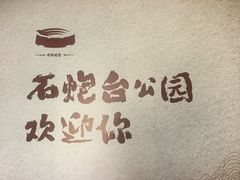 石炮台公园
欢迎你